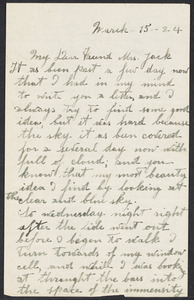 March 15 - 24
My Dear Friend Mrs. Jack
It as been past a few day now
that I had in my mind
to write you a letter, and I
always try to find some good
idea, but it was hard because
the sky it as been covered
for a several day now with
full of cloud; and you
know that my most beauty
idea I find by looking at
the clear and blue sky.
So wednesday night right
after the light went out
before I began to walk I
turn towards of my window
cell, and while I was look
at through the bars into
the space of the immensity